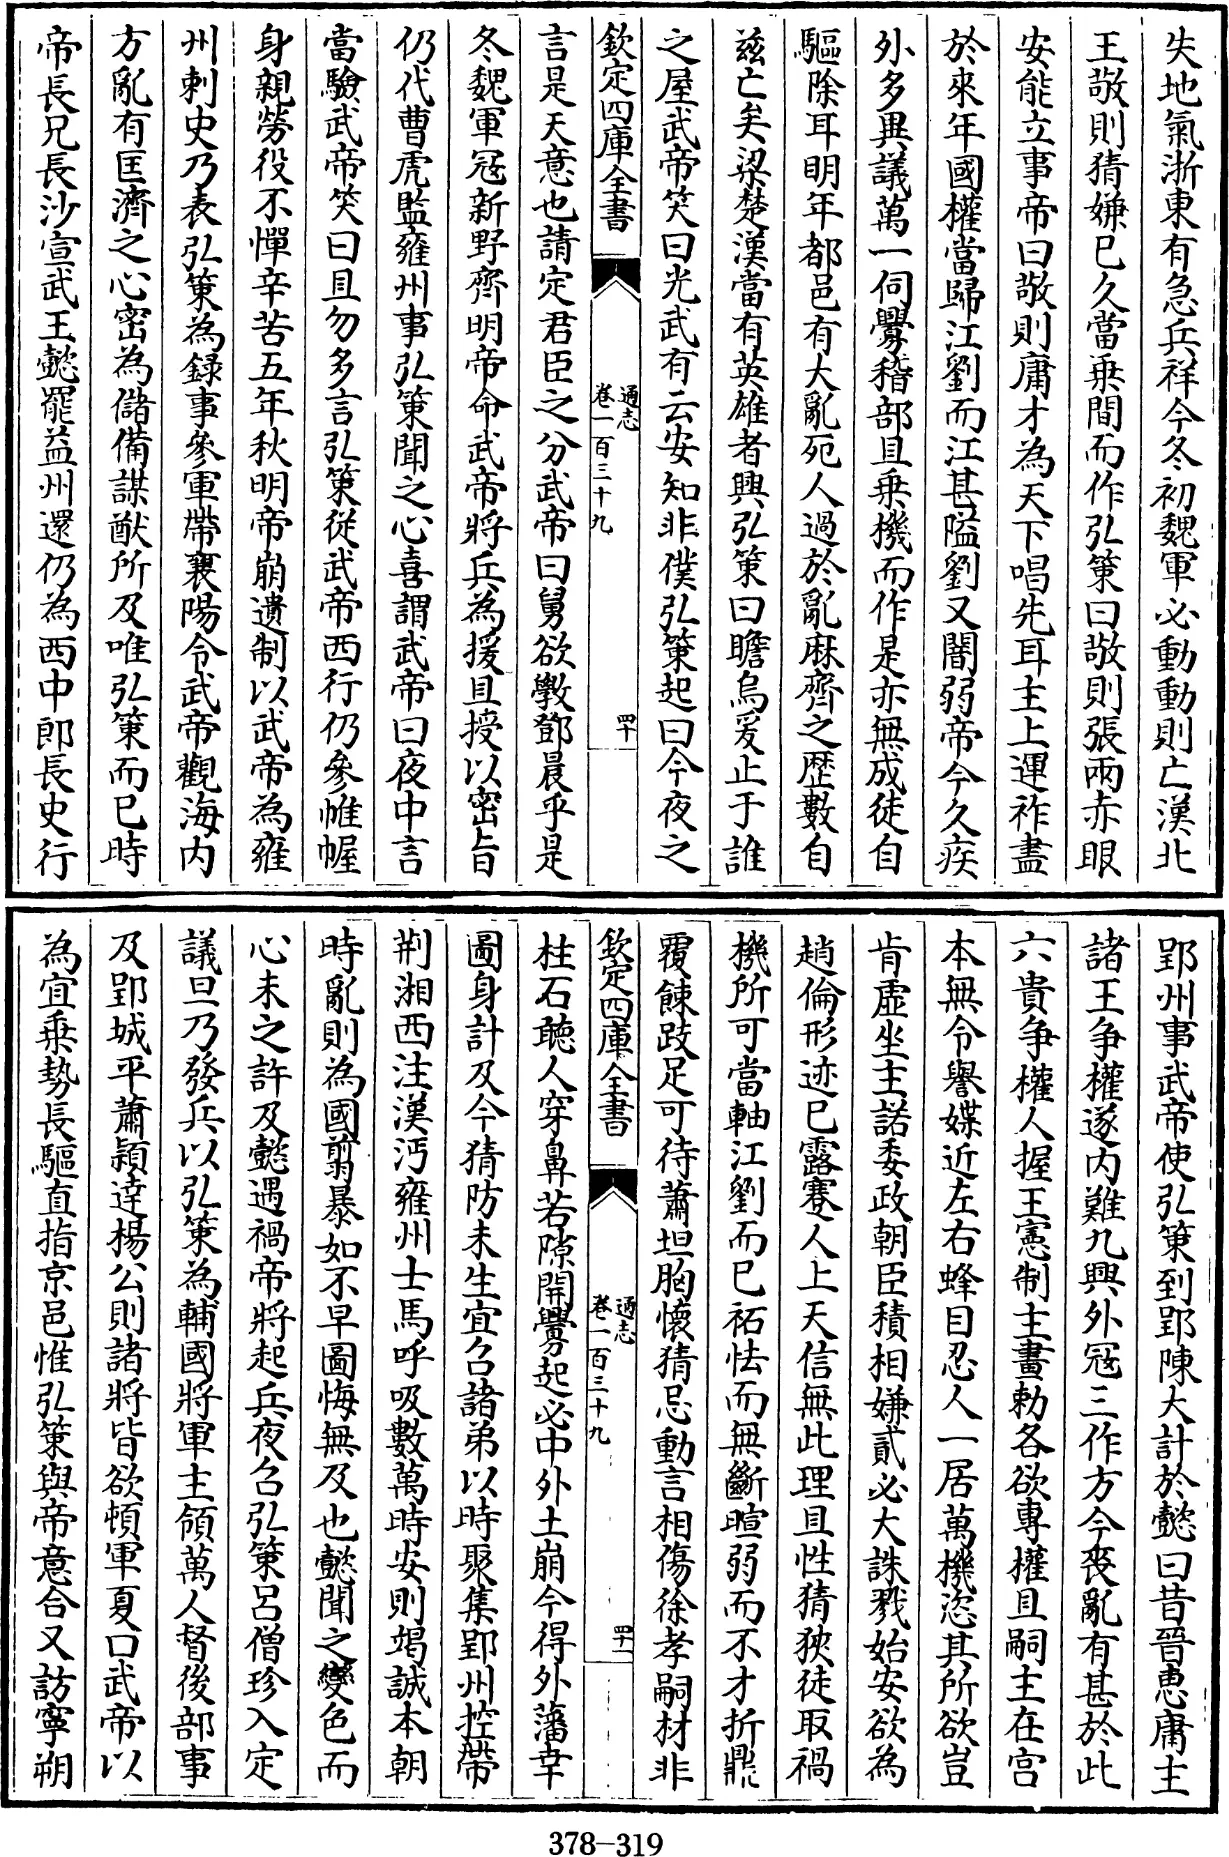 失地氣浙東有急兵祥今冬初魏軍必動動則亡漢北
王敬則猜嫌已久當乗間而作弘策曰敬則張兩赤眼
安能立事帝曰敬則庸才為天下唱先耳主上運祚盡
於來年國權當歸江劉而江甚隘劉又闇弱帝今久疾
外多異議萬一伺釁稽部且乗機而作是亦無成徒自
驅除耳明年都邑有大亂死人過於亂麻齊之歴數自
兹亡矣梁楚漢當有英雄者興弘策曰瞻烏爰止于誰
之屋武帝笑曰光武有云安知非僕弘策起曰今夜之
欽定四庫全書
通志
卷一百三十九
四十
言是天意也請定君臣之分武帝曰舅欲斆鄧晨乎是
冬魏軍冦新野齊明帝命武帝將兵為援且授以密旨
仍代曹虎監雍州事弘策聞之心喜謂武帝曰夜中言
當驗武帝笑曰且勿多言弘策從武帝西行仍參帷幄
身親勞役不憚辛苦五年秋明帝崩遺制以武帝為雍
州刺史乃表弘策為録事參軍帶襄陽令武帝觀海内
方亂有匡濟之心密為儲備謀猷所及唯弘策而已時
帝長兄長沙宣武王懿罷益州還仍為西中郎長史行
郢州事武帝使弘策到郢陳大計於懿曰昔晉惠庸主
諸王争權遂内難九興外冦三作方今喪亂有甚於此
六貴争權人握王憲制主畫勅各欲專權且嗣主在宫
本無令譽媟近左右蜂目忍人一居萬機恣其所欲豈
肯虚坐主諾委政朝臣積相嫌貳必大誅戮始安欲為
趙倫形迹已露蹇人上天信無此理且性猜狹徒取禍
機所可當軸江劉而已祏怯而無斷暄弱而不才折鼎
覆餗跂足可待蕭坦胸懷猜忌動言相傷徐孝嗣材非
欽定四庫全書
通志
卷一百三十九
四十一
柱石聽人穿鼻若隙開釁起必中外土崩今得外藩幸
圖身計及今猜防未生宜召諸弟以時聚集郢州控帶
荆湘西注漢沔雍州士馬呼吸數萬時安則竭誠本朝
時亂則為國翦暴如不早圖悔無及也懿聞之變色而
心未之許及懿遇禍帝將起兵夜召弘策吕僧珍入定
議旦乃發兵以弘策為輔國將軍主領萬人督後部事
及郢城平蕭穎達楊公則諸將皆欲頓軍夏口武帝以
為宜乗勢長驅直指京邑惟弘策與帝意合又訪寧朔
378-319